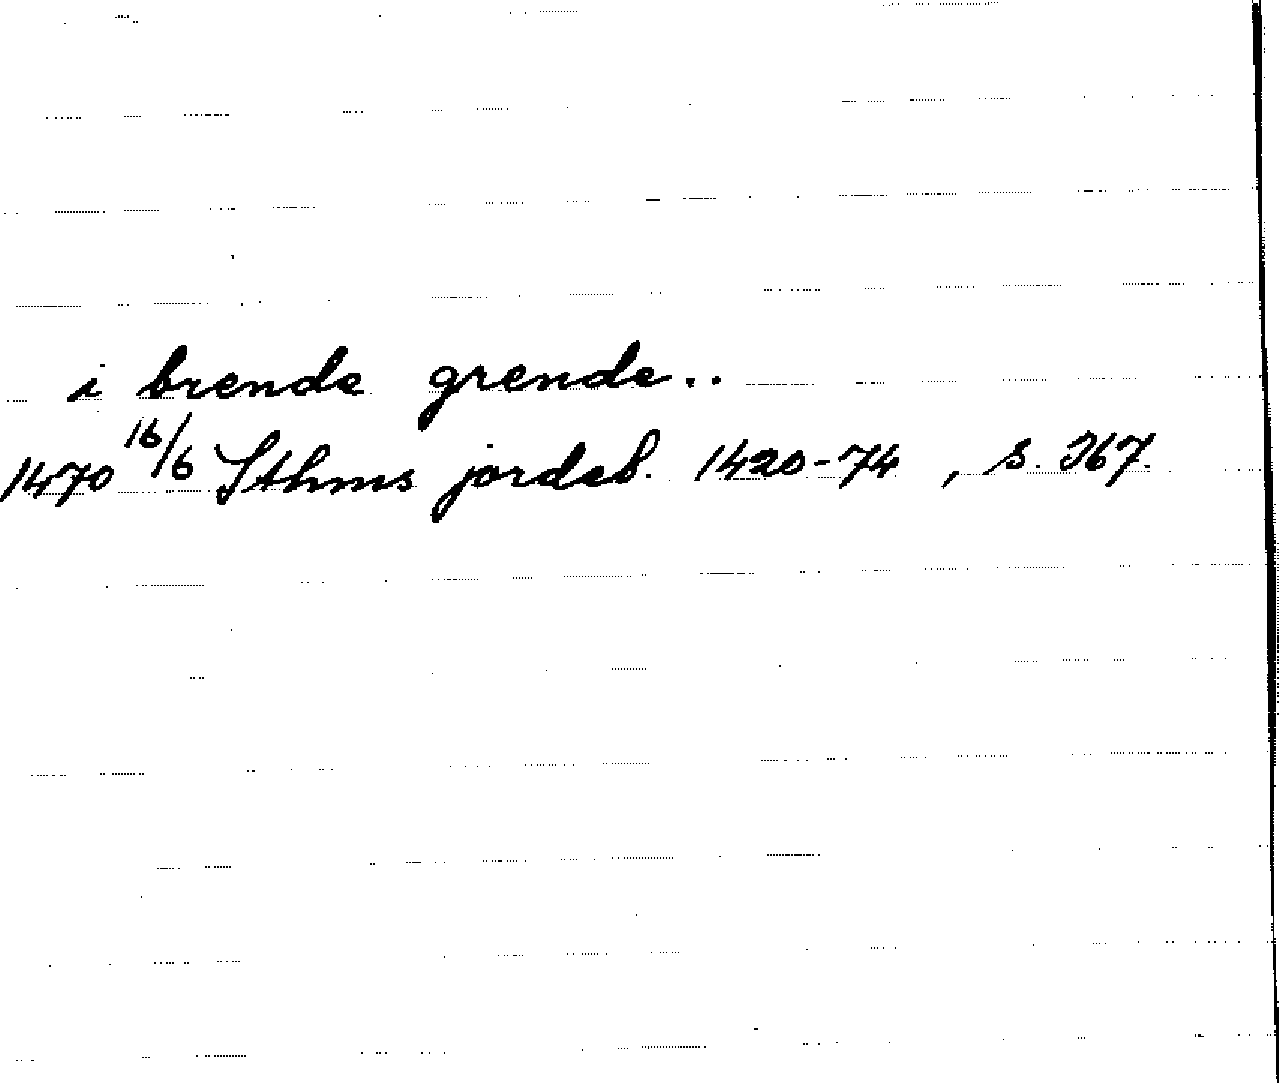 i brende grende..
1470 16/6 Sthms jordeb. 1420-74, s. 367.